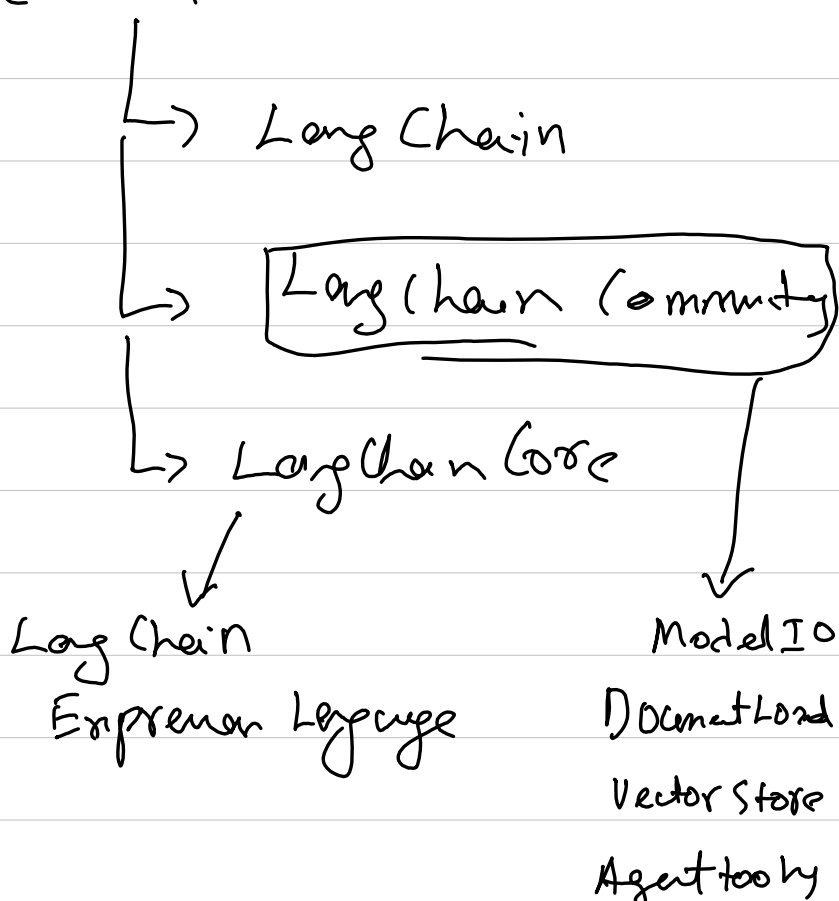 LangChain
LangChain Community
LangChain Core
LangChain
Expression Language
Model IO
Document Load
Vector Store
Agent tools